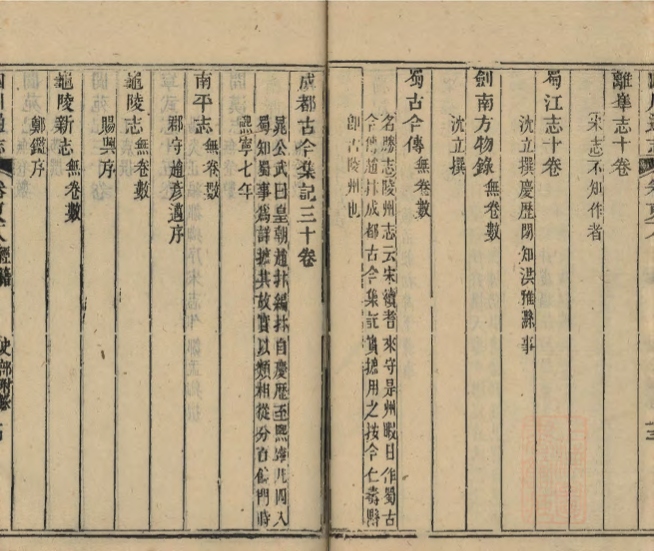 離𡊮志十卷
宋志不知作者
蜀江志十卷
沈立撰慶歷閒知洪雅縣事
劍南方物錄無卷數
沈立撰
蜀古今傳無卷數
名勝志陵州志云宋續者來守是州暇日作蜀古
今傳趙抃成都古今集記實摭用之按今仁壽縣
卽古陵州也
成都古今集記三十卷
晁公武曰皇朝趙抃編抃自慶歷至熙寧凡四入
蜀知蜀事爲詳摭其故實以類相從分百餘門時
熙寧七年
南平志無卷數
郡守趙彥邁序
龜陵志無卷數
賜興序
龜陵新志無卷數
鄭鑑序
四川通志
經籍
史部附錄